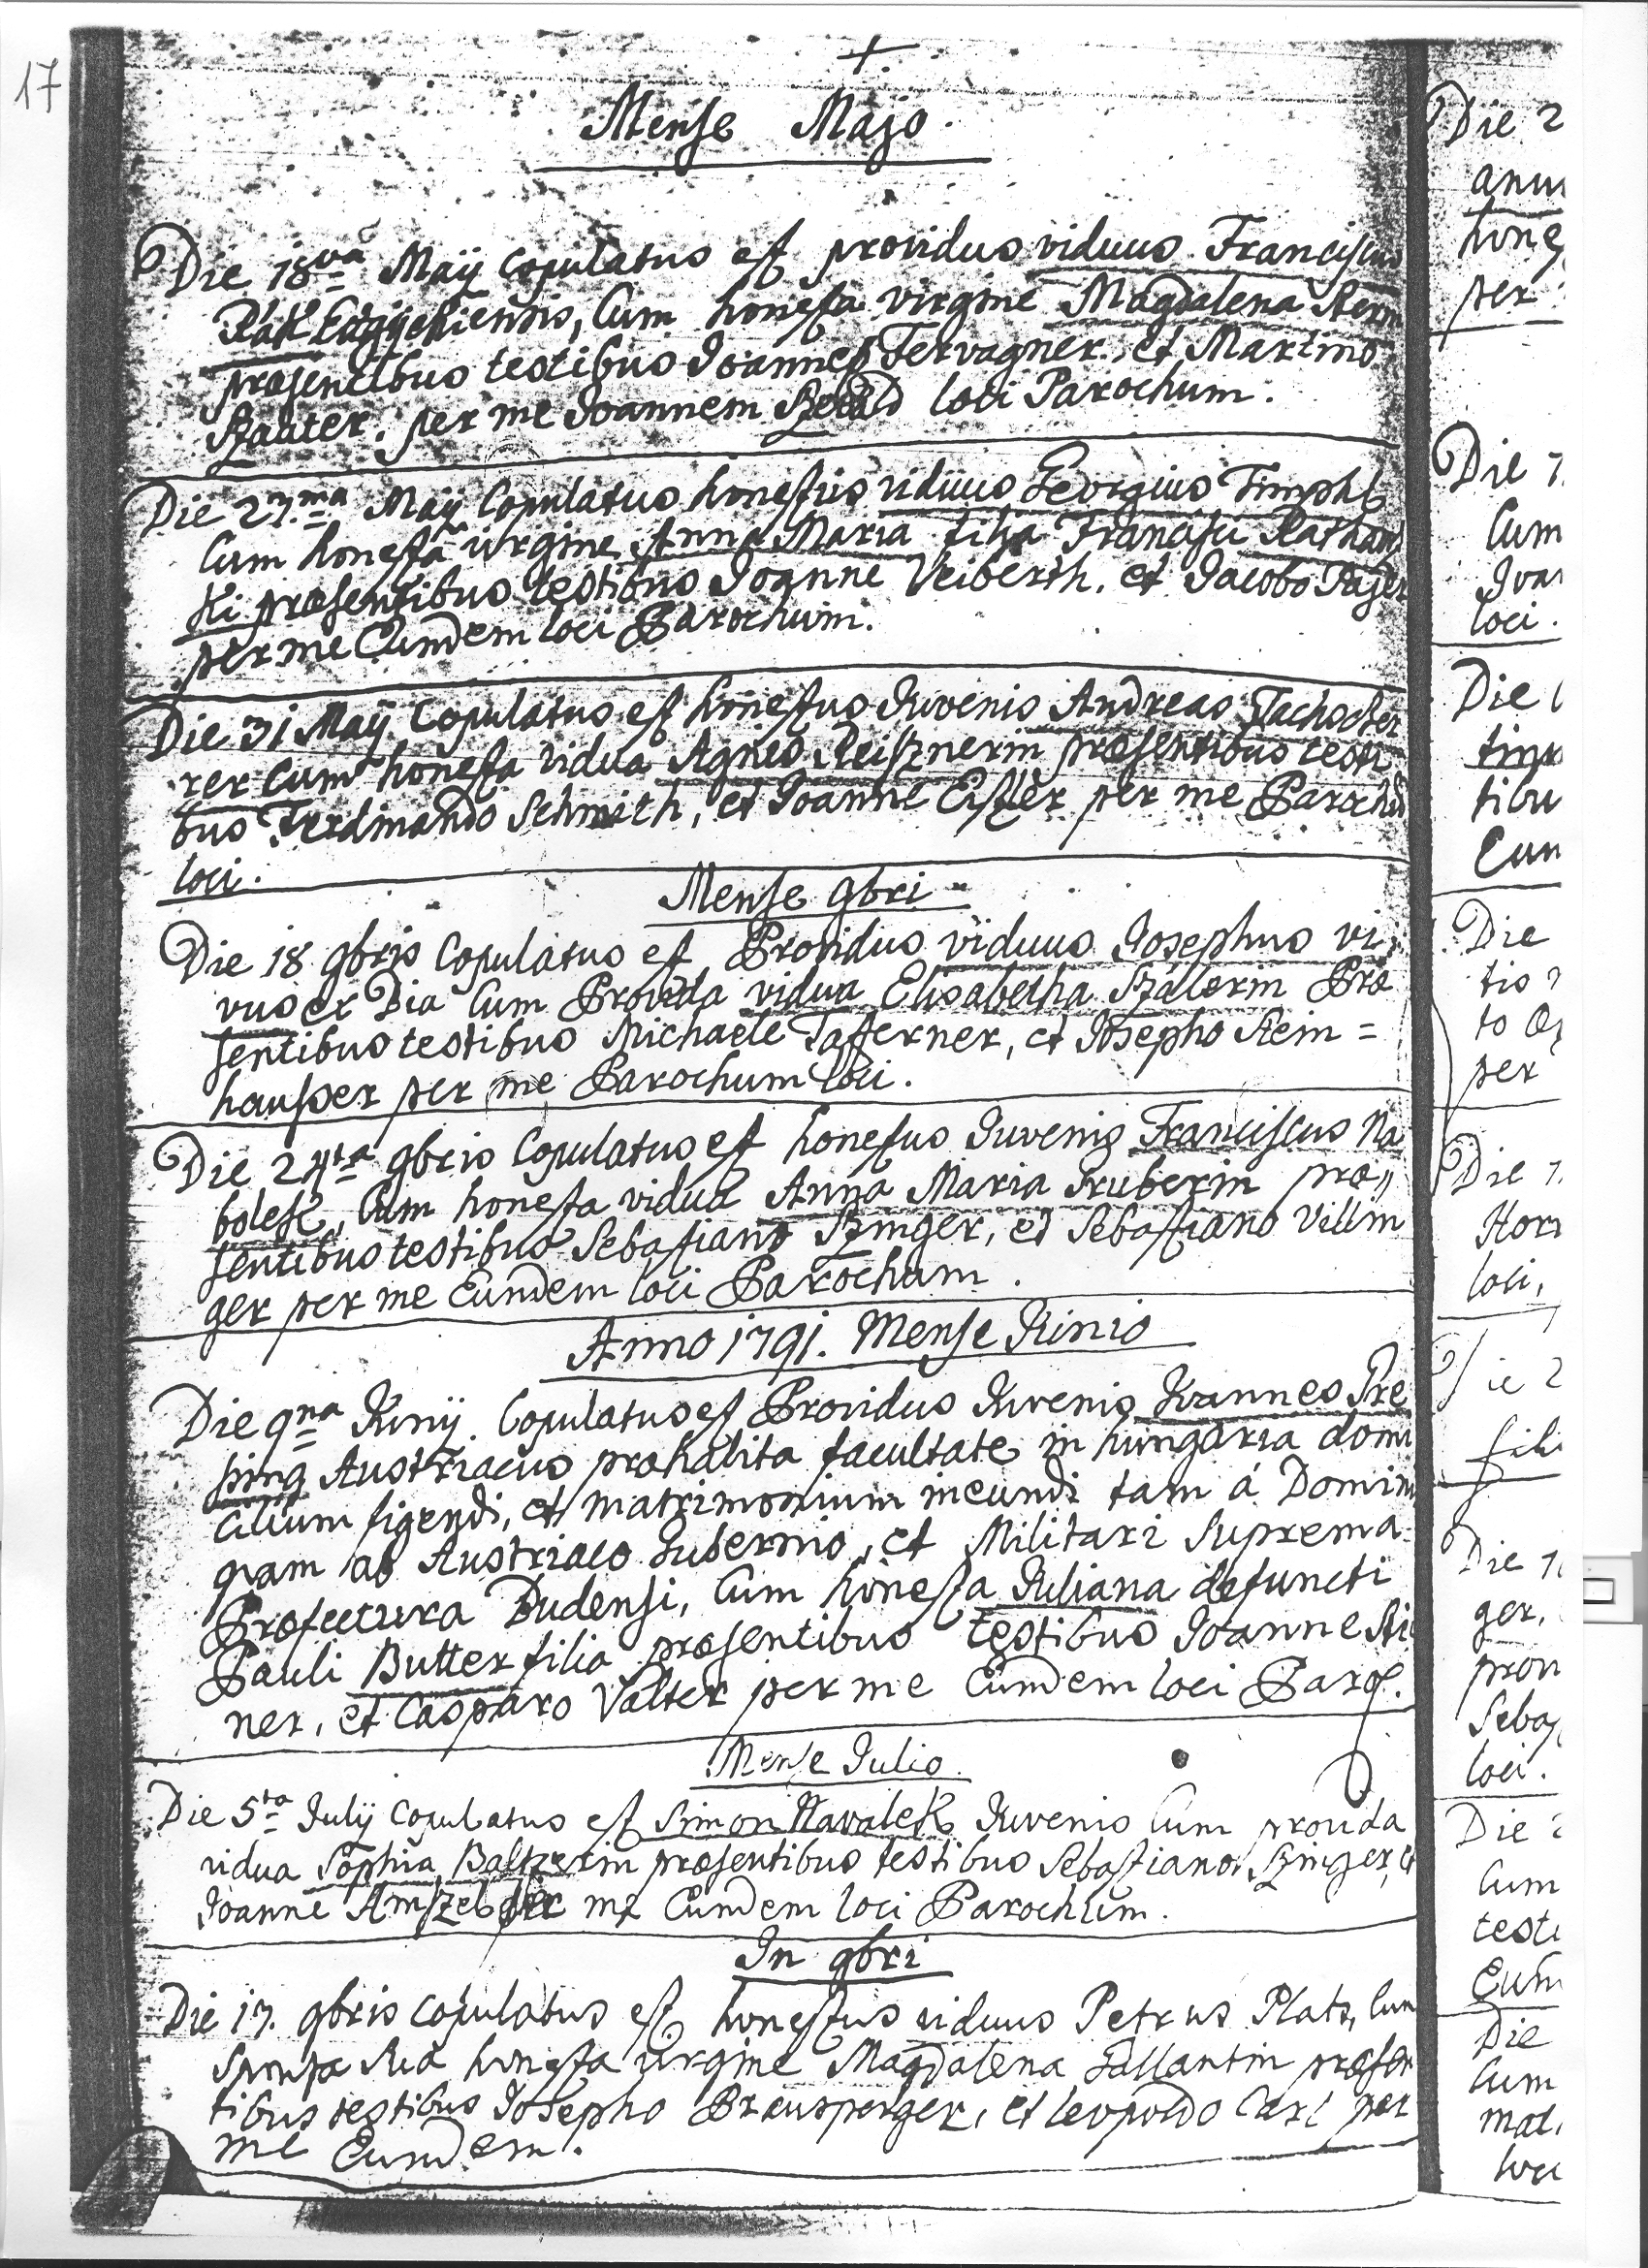 17
+
Mense Majo
Die 18va Maÿ Copulatus est providus viduus Franciscus
Rátkegÿÿehiensis, Cum honesta virgine Magdalena
præsentibus testibus Joannes Fervagner, et Martino
Szauter. per me Joannem loci Parochum.
Die 27ma Maÿ Copulatus honestus viduus Georgius Timphl
Cum honesta virgine Anna Maria filia Francisci Rathan
ki præsentibus testibus Joanne Veiberth, et Jacobo
per me Eundem loci Parochum.
Die 31 Maÿ Copulatus est honestus Juvenis Andreas
rer Cum honesta vidua Agnes Reisznerin præsentibus testi
bus Ferdinando Schmith, et Joanne Eiszler per me Parochũ
loci.
Mense 9bri
Die 18 9bris Copulatus est Providus viduus Josephus vi,
vus ex Dia Cum Provida vidua Elisabetha Szálerin Præ
sentibus testibus Michaele Tafferner, et Josepho Rein =
hauser per me Parochum loci.
Die 24ta 9bris Copulatus est honestus Juvenis Franciscus Na
bolek, Cum honesta vidua Anna Maria Gruberin præ,,
sentibus testibus Sebastiano Szinger, et Sebastiano Villin
ger per me Eundem loci Parochum.
Anno 1791. Mense Junio
Die 9na Junÿ. Copulatus est Providus Juvenis Joannes Pre
sing Austriacus præhabita facultate in hungaria domi
cilium figendi, et matrimonium ineundi tam á Domini
quam ab Austriaco Gubernio, et Militari Suprema
Præfectura Budensi, Cum honesta Juliana defuncti
Pauli Butter filia præsentibus testibus Joanne
ner, et Casparo Valter per me Eundem loci Paroc.
Mense Julio
Die 5ta Julÿ Copulatus est Simon Navalek Juvenis Cum provida
vidua Sophia Baltzerin præsentibus testibus Sebastiano Szinger, et
Joanne Amszel per me Eundem loci Parochum.
In 9bri
Die 17. 9bris Copulatus est honestus viduus Petrus Plats, Cum
Sponsa Sua honesta virgine Magdalena Gallantin præsen
tibus testibus Josepho Brausperger, et Leopoldo Carl per
me Eundem.
Die 2
hones
per
Die 7
Cum
Joan
loci.
Die
tibu
Eun
Die
tis
to
per
Die
loci,
fili
Die
ger,
prov
Sebas
loci.
Die
Cum
testi
Eum
Die
Cum
mat
loci